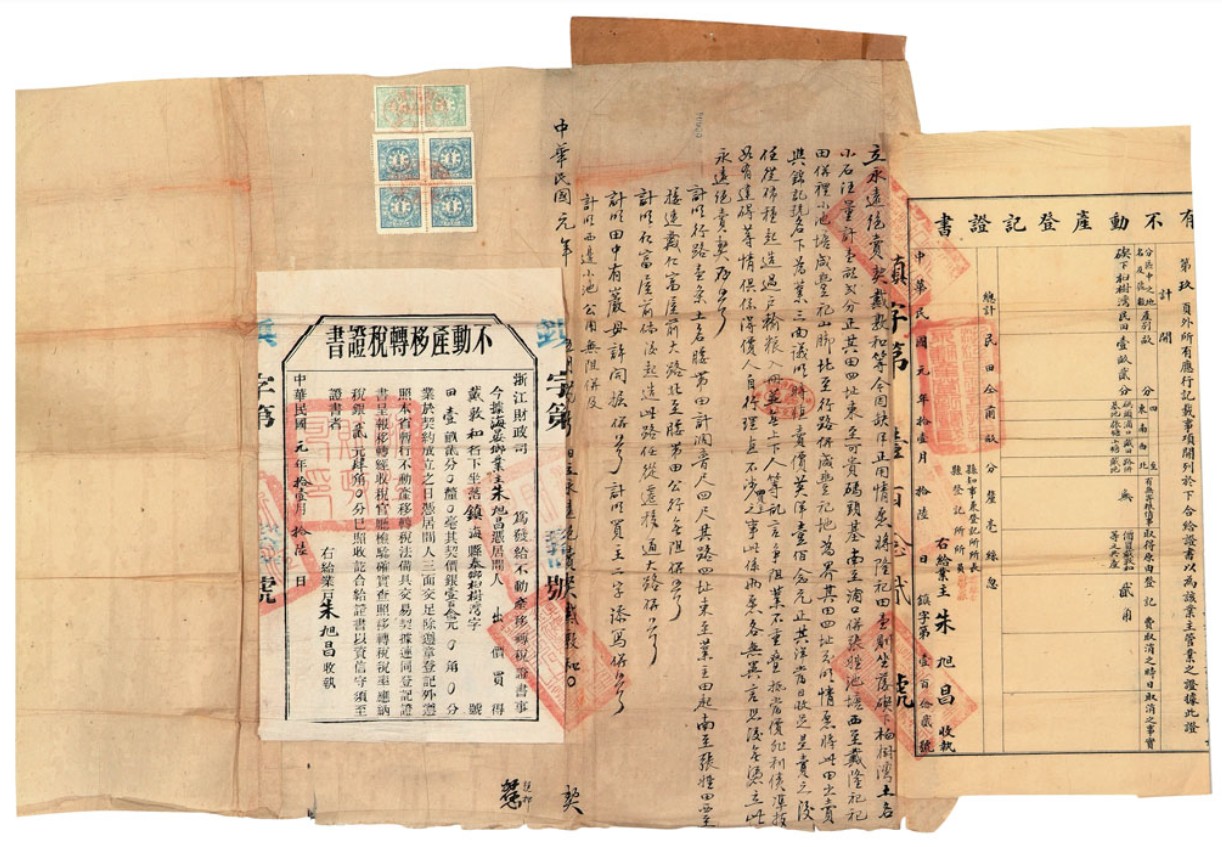 有不動產登記證書
第玖頁外所有應行記載事項開列於下合給證書以為該業主管業之證據此證
計開
分區中之地名及號數
產別
畝分
四至
東
南
西
北
有無喬根情事
取得原由
登記費
取消之時日
取消之事實
碶下柏樹灣民田壹畝貳分
無
貳角
總計民田
畝
分釐毫絲忽
縣知事兼登記所所長
縣登記所所員
右給業主朱旭昌收執
中華民國元年拾壹月拾陸日鎮字第壹百拾貳號
鎮字第壹百念貳號
立永遠絕賣契戴敦和等今因缺洋正用情愿將隆祀田壹則坐落碶下柏樹灣土名
小石汪量計壹畝貳分正其田四址東至可貴碼頭基南至浦口併張姓池塘西至戴隆祀祀
田併裡小池塘咸豐祀山腳北至行路併咸豐祀地為界其田四址分明情愿將此田出賣
與錦記號名下為業三面議明時值賣價英洋壹佰念元正其洋當日收足是賣之後
任從布種起造過戶輸糧入冊並無上下人等訊言爭阻業不重疊抵當價非利債準拆
如有違碍等情俱係得價人自行理直不涉買主之事此係兩愿各無異言恐後無憑立此
永遠絕賣契存照
計明行路壹条土名腰帶田計濶魯尺四尺其路四址東至業主田起南至張姓田西至
接連戴仁富屋前大路北至腰帶田公行無阻併照
計明仁富屋前倘後起造此路任從遷移通大路併照
計明田中有巖毋許開掘併照 計明買主二字添寫併照
計明西邊小池公用無阻併及
中華民國元年
契
不動產移轉稅證書
浙江財政司 為發給不動產移轉稅證書事
今據海晏鄉業主朱旭昌憑居間人 出價買得
戴敦和名下坐落鎮海縣泰邱鄉柏樹灣字 號
田壹畝貳分〇釐〇毫其契價銀壹百念元〇角〇分
業於契約成立之日憑居間人三面交足除遵章登記外遵
照本省暫行不動產移轉稅法備具交易契據連同登記證
書呈報移轉經收稅官廳檢驗確實查照移轉稅稅率應納
稅銀貳元肆角〇分已照收訖合給證書以資信守須至
證書者
右給業戶朱旭昌收執
中華民國元年拾壹月拾陸日
字第
號